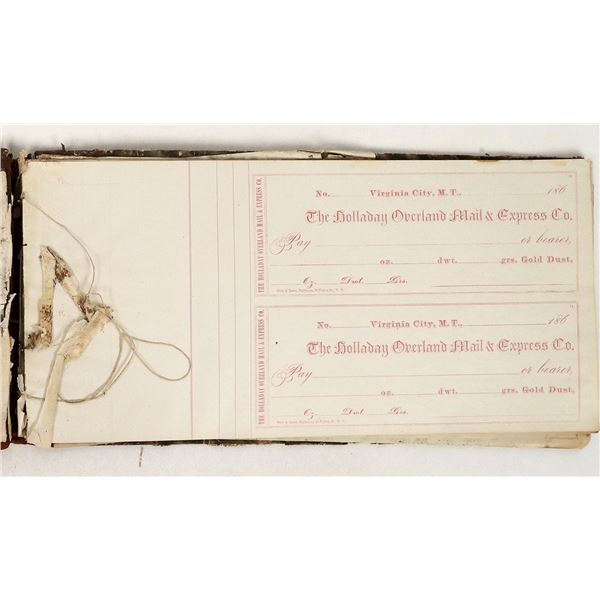 THE HOLLADAY OVERLAND MAIL & EXPRESS CO.
No. Virginia City, M.T., 186
The Holladay Overland Mail & Express Co.
Pay or bearer,
oz. dwt. grs. Gold Dust,
Oz. Dwt. Grs.
THE HOLLADAY OVERLAND MAIL & EXPRESS CO.
No. Virginia City, M.T., 186
The Holladay Overland Mail & Express Co.
Pay or bearer,
oz. dwt. grs. Gold Dust,
Oz. Dwt. Grs.